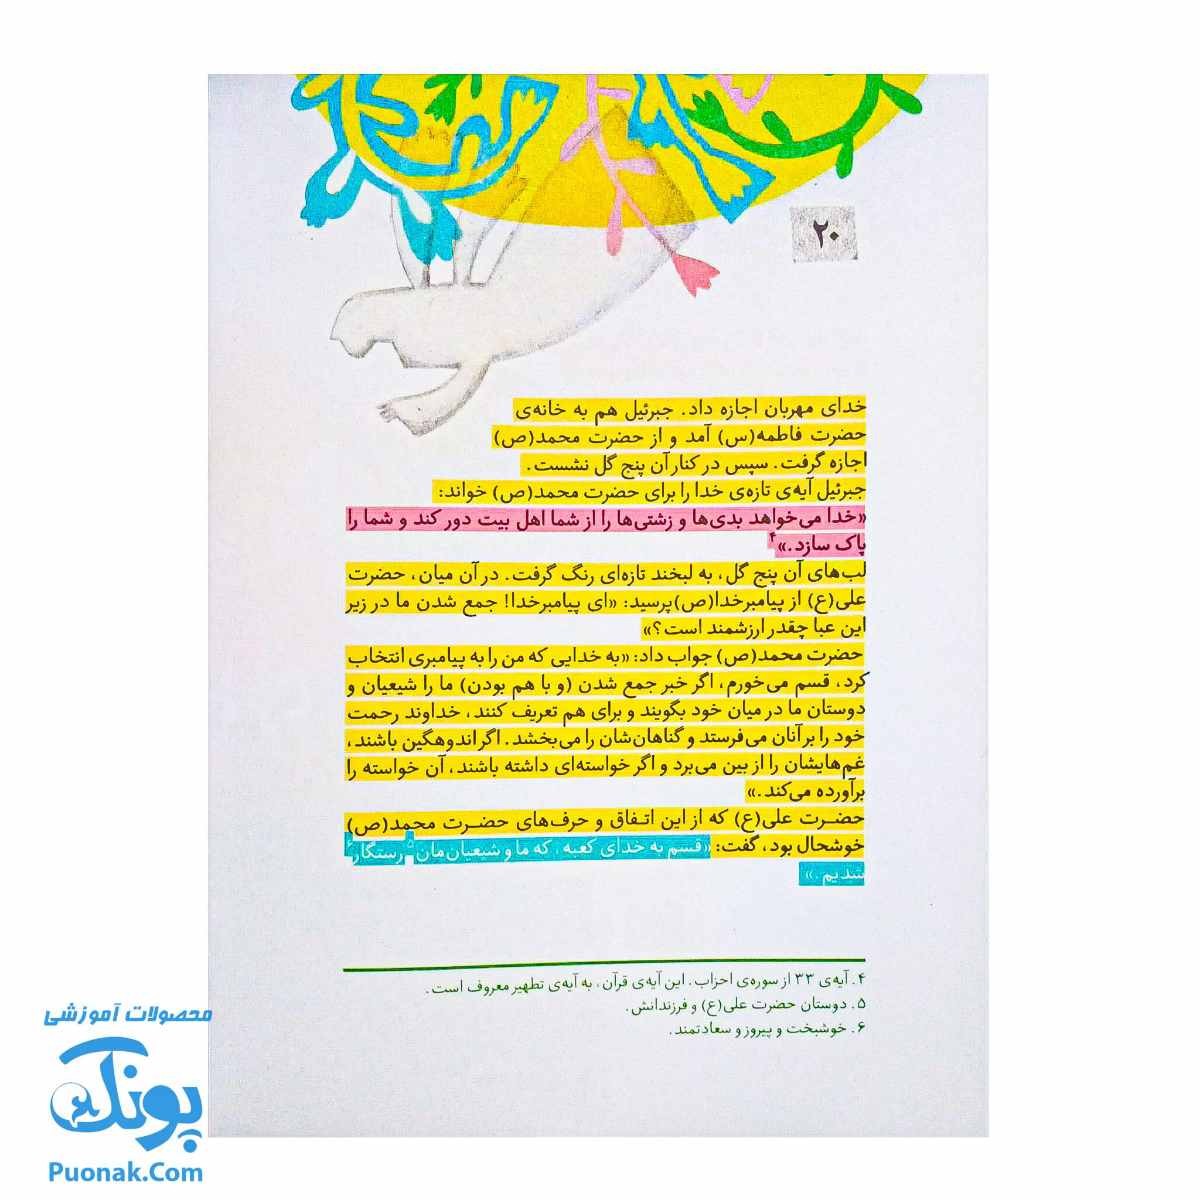 ۲۰
خدای مهربان اجازه داد. جبرئیل هم به خانه‌ی
حضرت فاطمه(س) آمد و از حضرت محمد(ص)
اجازه گرفت. سپس در کنار آن پنج گل نشست.
جبرئیل آیه‌ی تازه‌ی خدا را برای حضرت محمد(ص) خواند:
«خدا می‌خواهد بدی‌ها و زشتی‌ها را از شما اهل بیت دور کند و شما را
پاک سازد.»۴
لب‌های آن پنج گل، به لبخند تازه‌ای رنگ گرفت. در آن میان، حضرت
علی(ع) از پیامبرخدا(ص)پرسید: «ای پیامبرخدا! جمع شدن ما در زیر
این عبا چقدر ارزشمند است؟»
حضرت محمد(ص) جواب داد: «به خدایی که من را به پیامبری انتخاب
کرد، قسم می‌خورم، اگر خبر جمع شدن (و با هم بودن) ما را شیعیان و
دوستان ما در میان خود بگویند و برای هم تعریف کنند، خداوند رحمت
خود را بر آنان می‌فرستد و گناهان‌شان را می‌بخشد. اگر اندوهگین باشند،
غم‌هایشان را از بین می‌برد و اگر خواسته‌ای داشته باشند، آن خواسته را
برآورده می‌کند.»
حضرت علی(ع) که از این اتفاق و حرف‌های حضرت محمد(ص)
خوشحال بود، گفت: «قسم به خدای کعبه، که ما و شیعیان‌مان۵ رستگار۶
شدیم.»
۴. آیه‌ی ۳۳ از سوره‌ی احزاب. این آیه‌ی قرآن، به آیه‌ی تطهیر معروف است.
۵. دوستان حضرت علی(ع) و فرزندانش.
۶. خوشبخت و پیروز و سعادتمند.
محصولات آموزشی
پونک
Puonak.Com